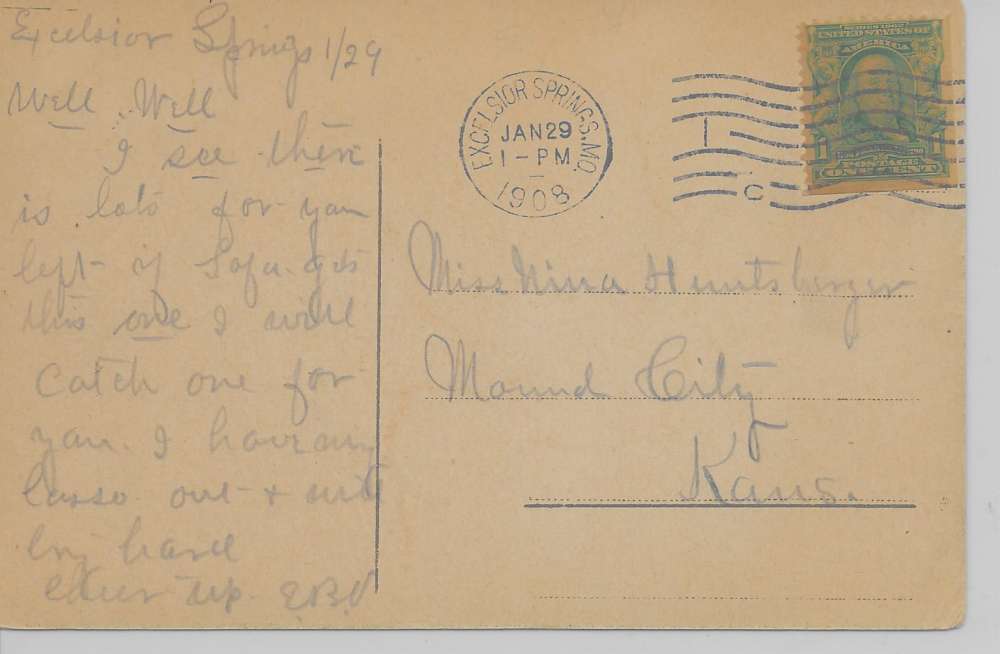 Excelsior Springs 1/29
Well, Well
I see there
is lots for you
left - if Sofa gets
this one I will
catch one for
you. I have my
lasso out + will
try hard
Cheer up. EBV
EXCELSIOR SPRINGS, MO.
JAN 29
1 - PM
1908
C
SERIES 1902
UNITED STATES OF
AMERICA
1 1
POSTAGE
ONE CENT
Miss Nina Huntsberger
Mound City
Kans.